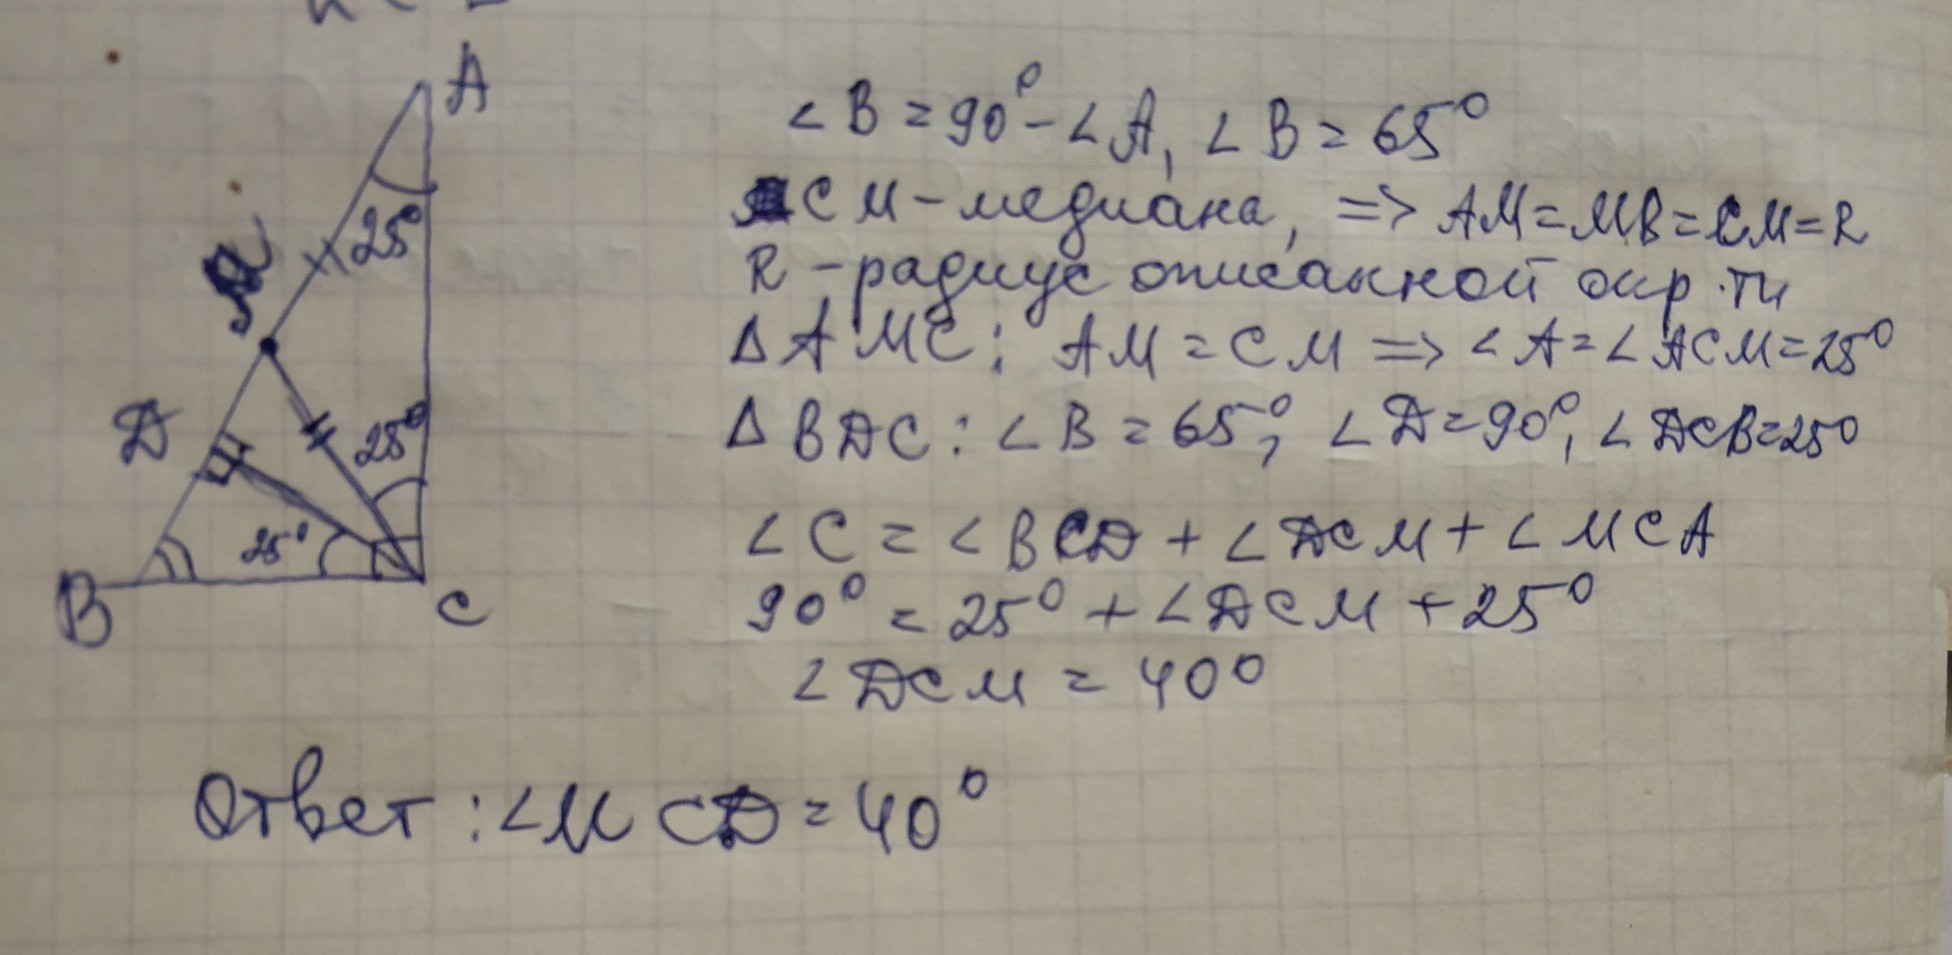 A
25°
D
25°
25°
B
C
∠B = 90° - ∠A, ∠B = 65°
CM - медиана, => AM = MB = CM = R
R - радиус описанной окр.ти
Δ AMC: AM = CM => ∠A = ∠ACM = 25°
Δ BDC: ∠B = 65°, ∠D = 90°, ∠DCB = 25°
∠C = ∠BCD + ∠DCM + ∠MCA
90° = 25° + ∠DCM + 25°
∠DCM = 40°
Ответ: ∠MCD = 40°